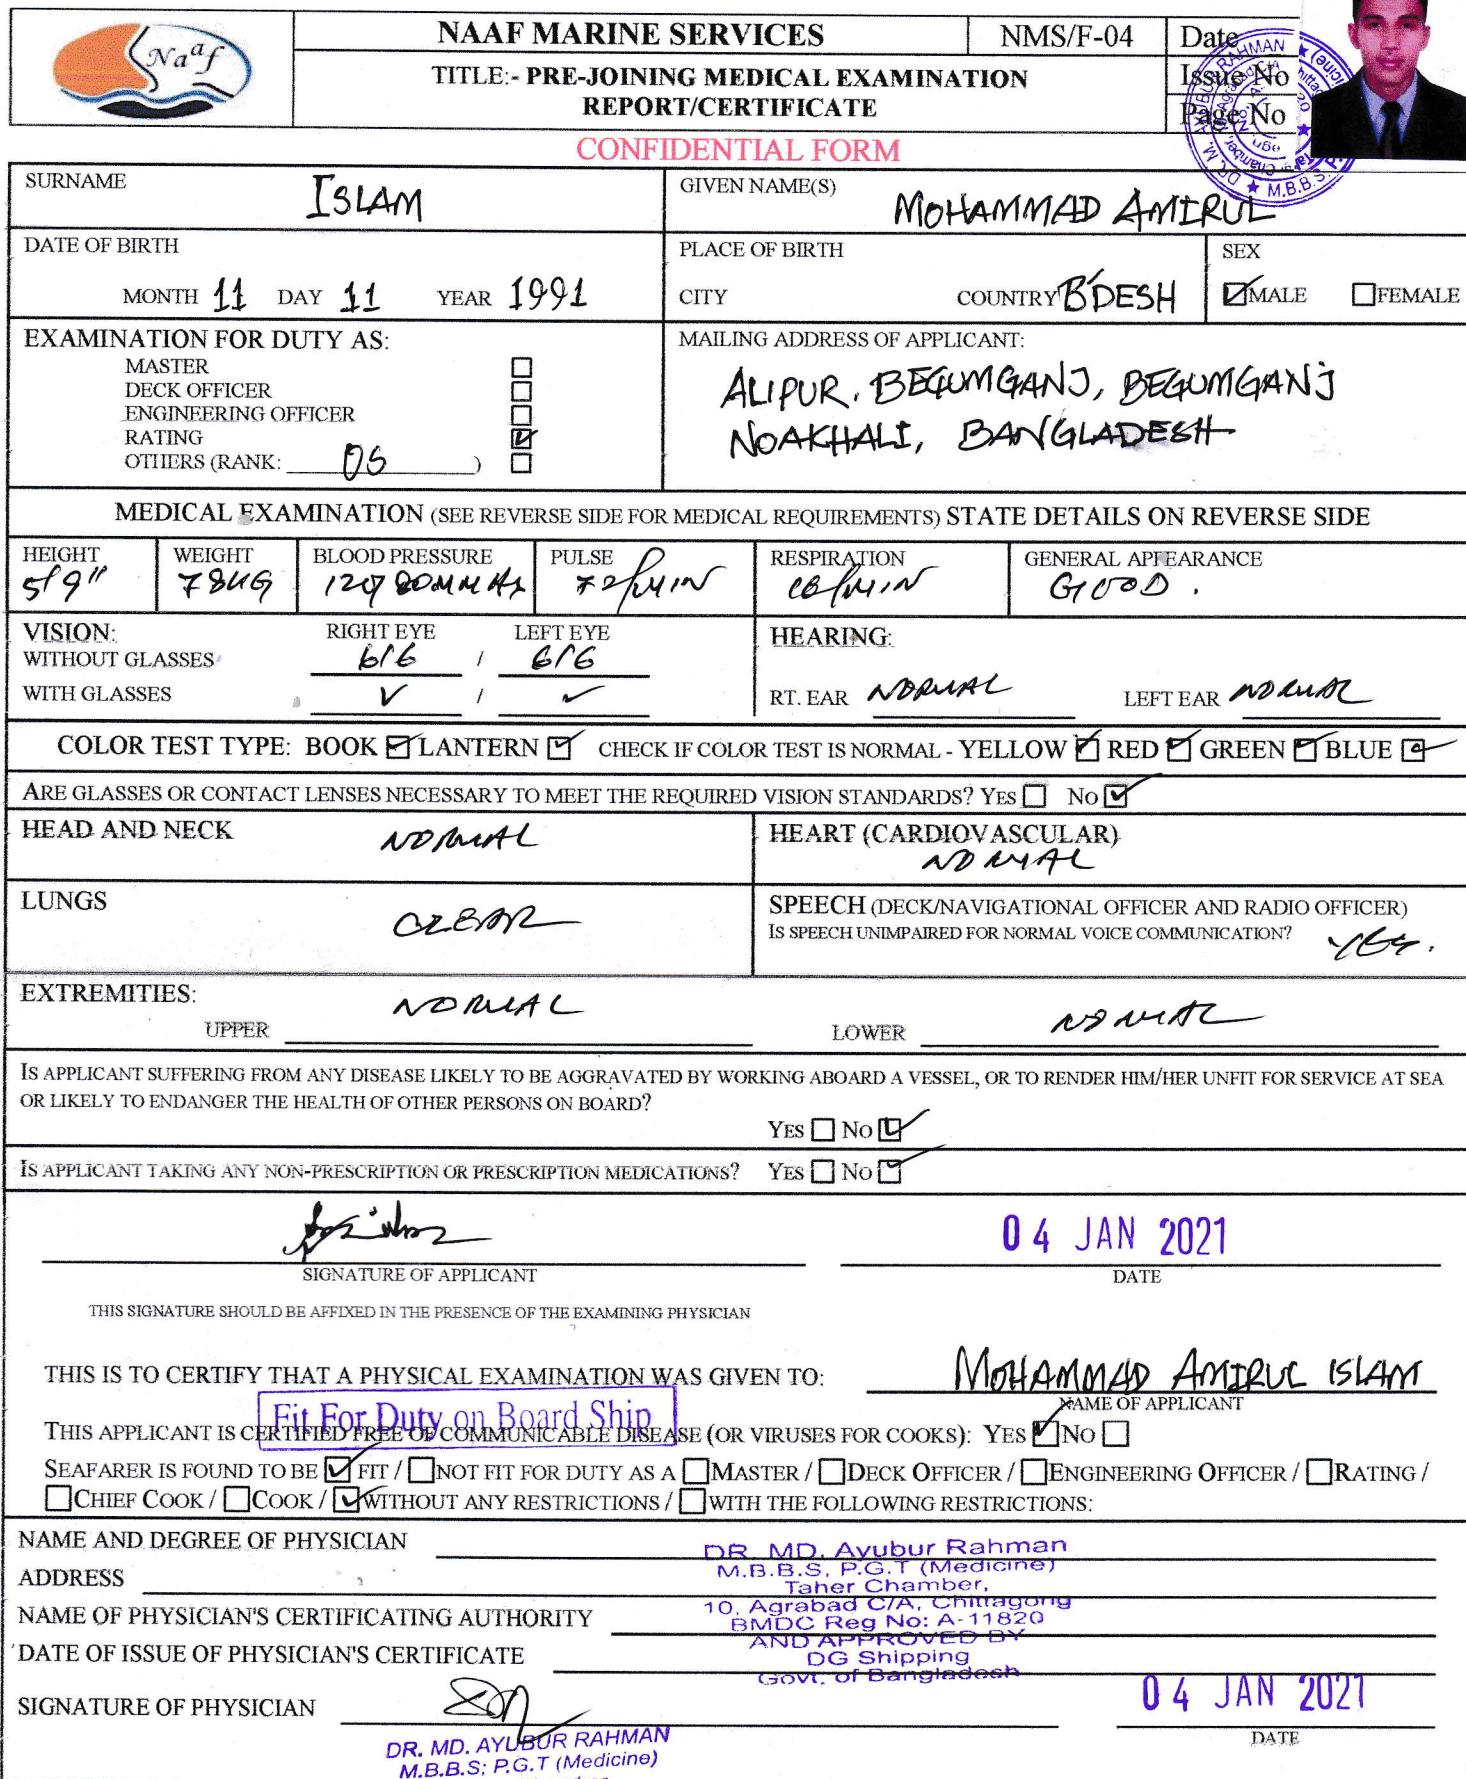 Naaf
NAAF MARINE SERVICES
NMS/F-04
Date
TITLE:- PRE-JOINING MEDICAL EXAMINATION
REPORT/CERTIFICATE
Issue No
Page No
CONFIDENTIAL FORM
SURNAME ISLAM
GIVEN NAME(S) MOHAMMAD AMIRUL
DATE OF BIRTH
MONTH 11 DAY 11 YEAR 1991
PLACE OF BIRTH
CITY COUNTRY B'DESH
SEX
MALE FEMALE
EXAMINATION FOR DUTY AS:
MASTER
DECK OFFICER
ENGINEERING OFFICER
RATING
OTHERS (RANK: OS )
MAILING ADDRESS OF APPLICANT:
ALIPUR, BEGUMGANJ, BEGUMGANJ
NOAKHALI, BANGLADESH
MEDICAL EXAMINATION (SEE REVERSE SIDE FOR MEDICAL REQUIREMENTS) STATE DETAILS ON REVERSE SIDE
HEIGHT 5'9"
WEIGHT 78KG
BLOOD PRESSURE 120/80MMHg
PULSE 72/MIN
RESPIRATION 16/MIN
GENERAL APPEARANCE GOOD.
VISION: RIGHT EYE LEFT EYE
WITHOUT GLASSES 6/6 / 6/6
WITH GLASSES /
HEARING:
RT. EAR NORMAL LEFT EAR NORMAL
COLOR TEST TYPE: BOOK LANTERN CHECK IF COLOR TEST IS NORMAL - YELLOW RED GREEN BLUE
ARE GLASSES OR CONTACT LENSES NECESSARY TO MEET THE REQUIRED VISION STANDARDS? YES NO
HEAD AND NECK NORMAL
HEART (CARDIOVASCULAR)
NORMAL
LUNGS CLEAR
SPEECH (DECK/NAVIGATIONAL OFFICER AND RADIO OFFICER)
IS SPEECH UNIMPAIRED FOR NORMAL VOICE COMMUNICATION? YES.
EXTREMITIES:
UPPER NORMAL LOWER NORMAL
IS APPLICANT SUFFERING FROM ANY DISEASE LIKELY TO BE AGGRAVATED BY WORKING ABOARD A VESSEL, OR TO RENDER HIM/HER UNFIT FOR SERVICE AT SEA
OR LIKELY TO ENDANGER THE HEALTH OF OTHER PERSONS ON BOARD?
YES NO
IS APPLICANT TAKING ANY NON-PRESCRIPTION OR PRESCRIPTION MEDICATIONS? YES NO
04 JAN 2021
SIGNATURE OF APPLICANT DATE
THIS SIGNATURE SHOULD BE AFFIXED IN THE PRESENCE OF THE EXAMINING PHYSICIAN
THIS IS TO CERTIFY THAT A PHYSICAL EXAMINATION WAS GIVEN TO: MOHAMMAD AMIRUL ISLAM
NAME OF APPLICANT
Fit For Duty on Board Ship
THIS APPLICANT IS CERTIFIED FREE OF COMMUNICABLE DISEASE (OR VIRUSES FOR COOKS): YES NO
SEAFARER IS FOUND TO BE FIT / NOT FIT FOR DUTY AS A MASTER / DECK OFFICER / ENGINEERING OFFICER / RATING /
CHIEF COOK / COOK / WITHOUT ANY RESTRICTIONS / WITH THE FOLLOWING RESTRICTIONS:
NAME AND DEGREE OF PHYSICIAN
DR. MD. Ayubur Rahman
M.B.B.S, P.G.T (Medicine)
ADDRESS
Taher Chamber,
10, Agrabad C/A, Chittagong
NAME OF PHYSICIAN'S CERTIFICATING AUTHORITY
BMDC Reg No: A-11820
AND APPROVED BY
DATE OF ISSUE OF PHYSICIAN'S CERTIFICATE
DG Shipping
Govt. of Bangladesh
SIGNATURE OF PHYSICIAN
04 JAN 2021
DATE
DR. MD. AYUBUR RAHMAN
M.B.B.S; P.G.T (Medicine)